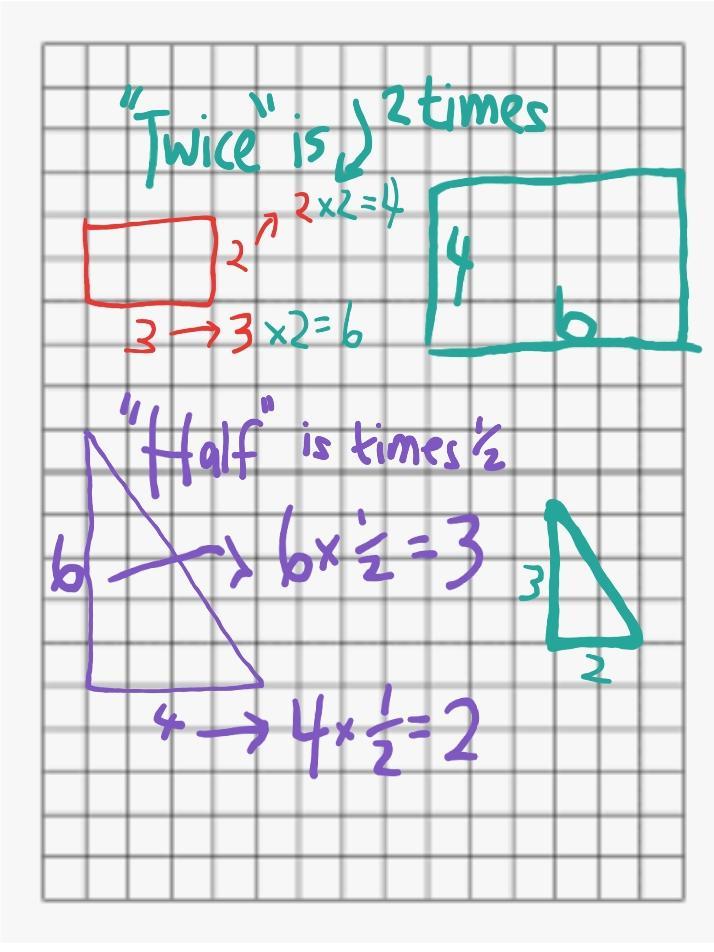 "Twice" is 2 times
2 → 2×2=4
3 → 3 ×2=6
4
6
"Half" is times 1/2
6 → 6× 1/2 = 3
4 → 4× 1/2 = 2
3
2